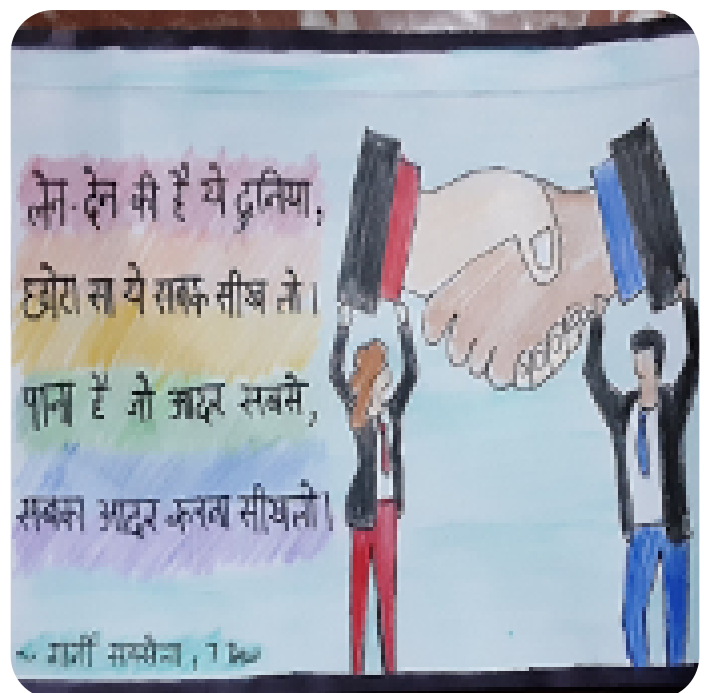 लेन-देन की है ये दुनिया,
छोटा सा ये सबक सीख लो।
पाना है जो आदर सबसे,
सबका आदर करना सीखलो।
- गार्गी सक्सेना, 7